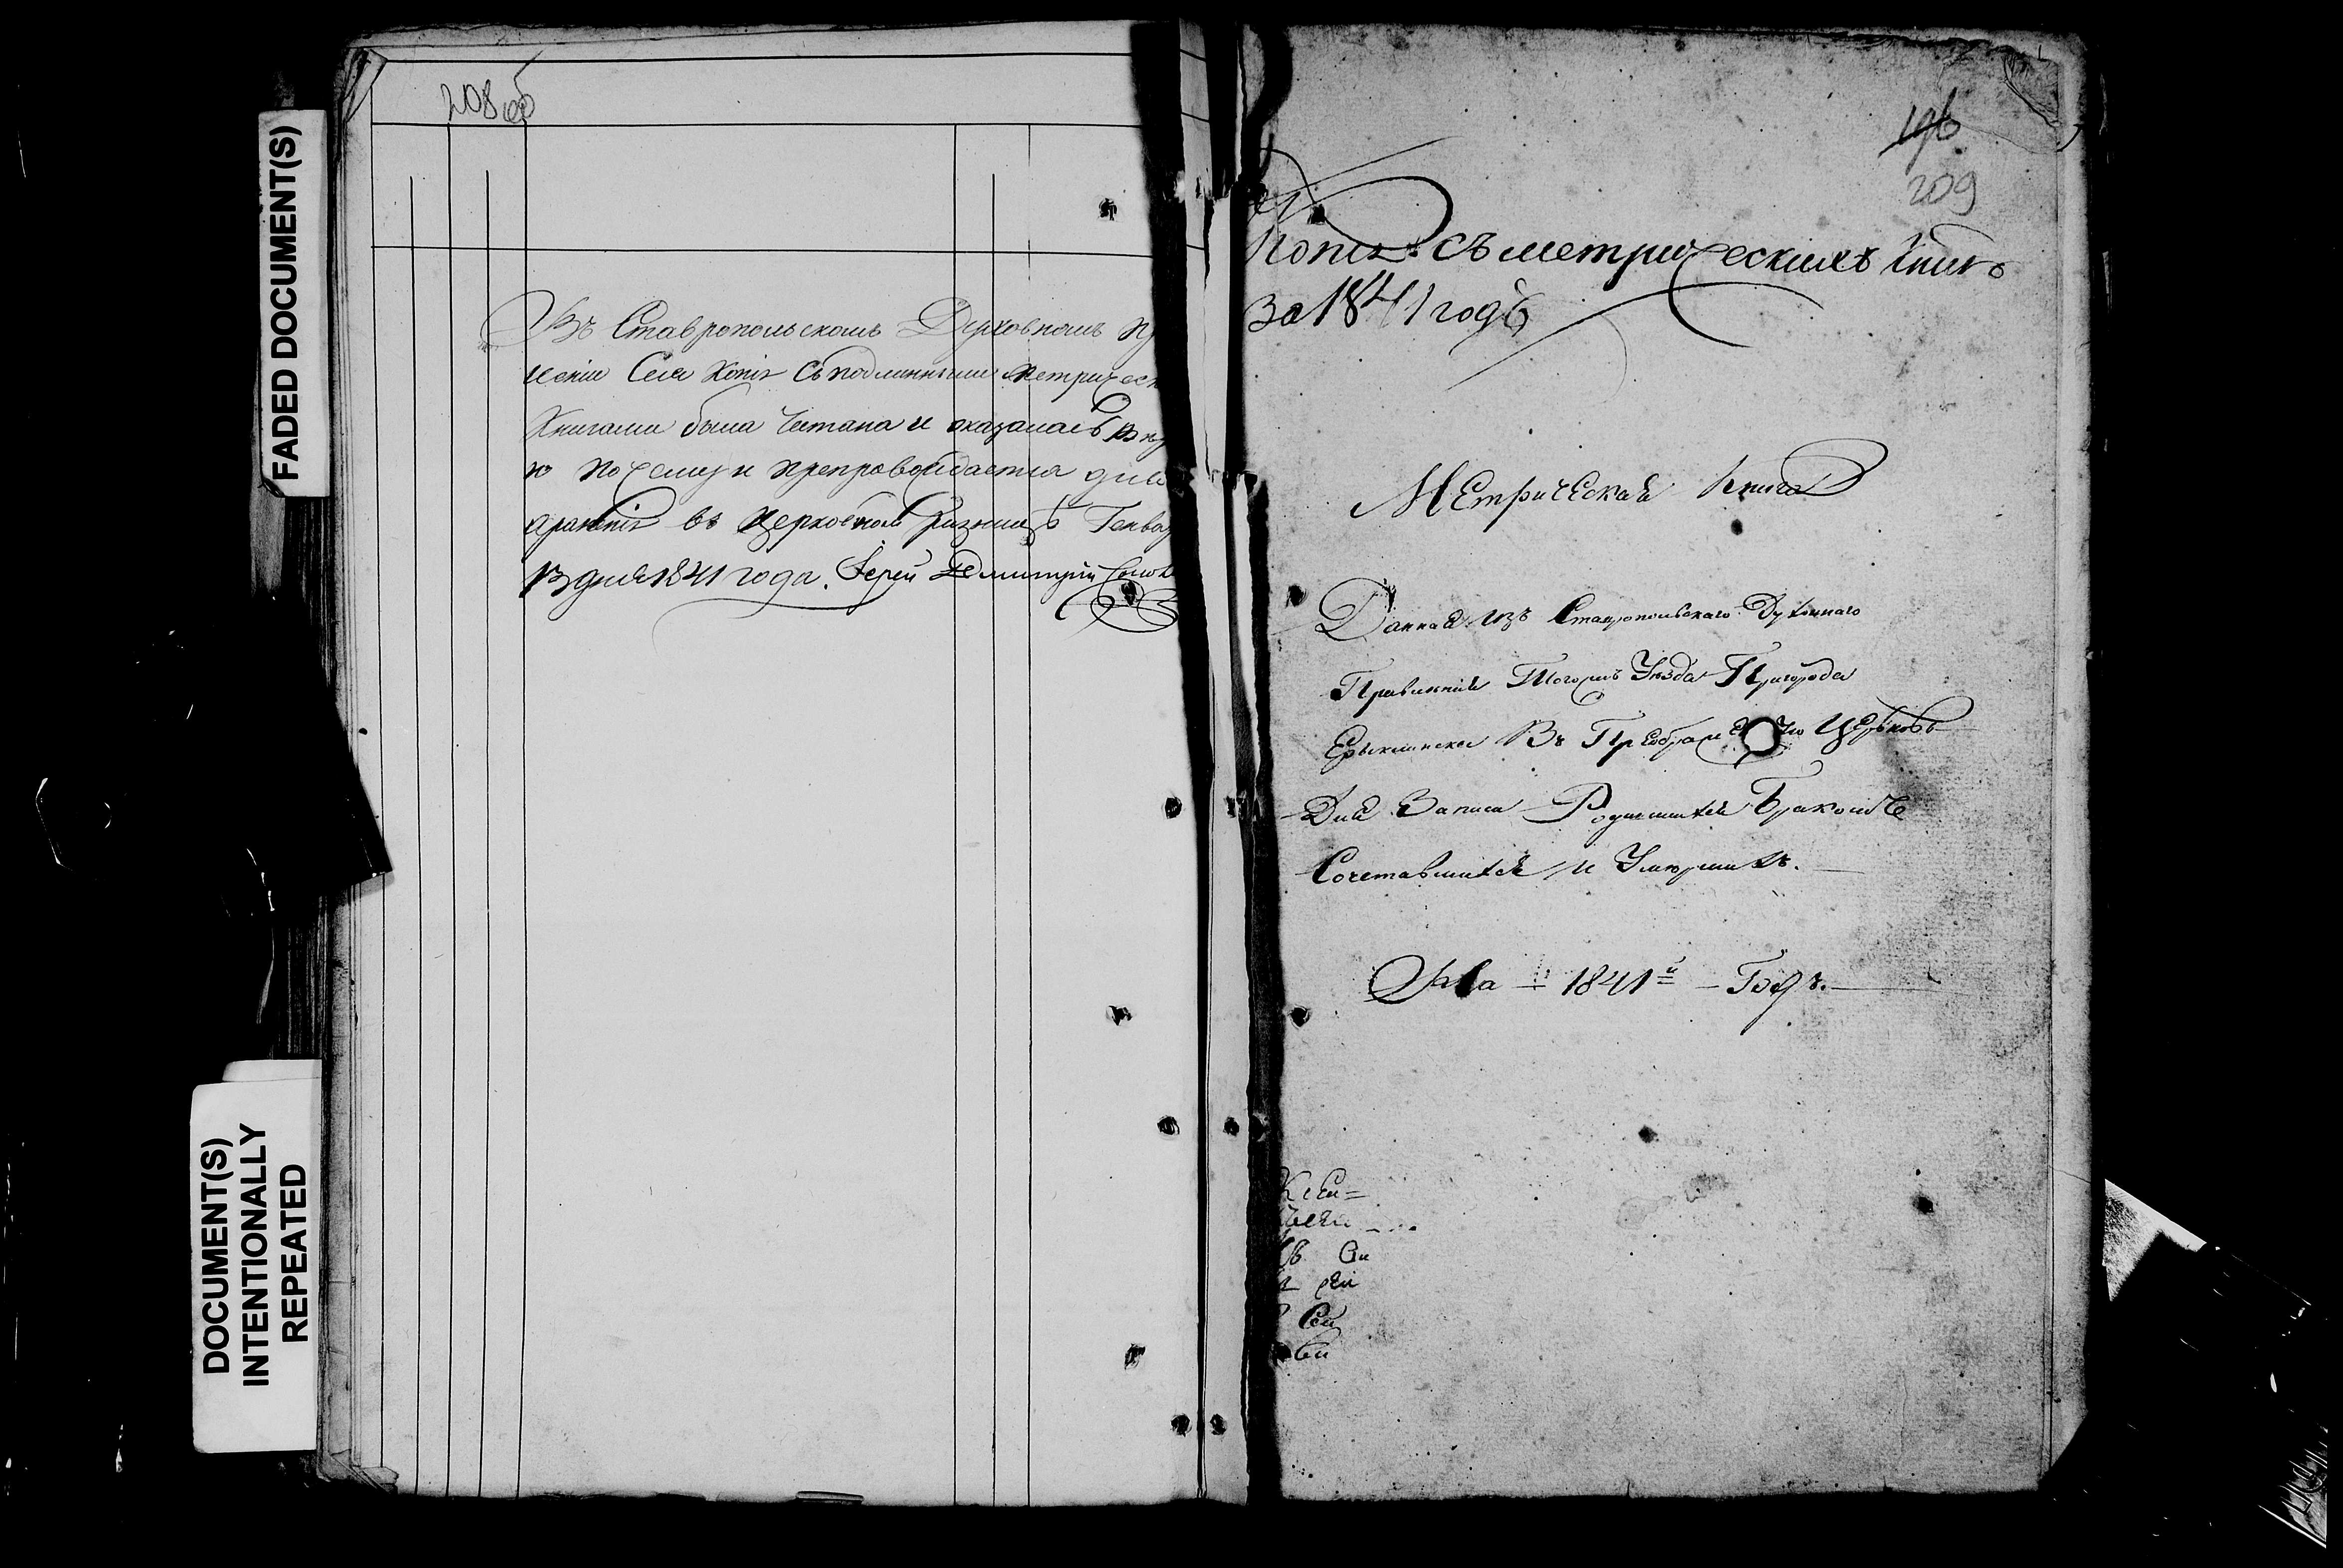 FADED DOCUMENT(S)
DOCUMENT(S)
INTENTIONALLY
REPEATED
208 об
Въ Ставропольскомъ Духовномъ пр
ленiи Сея Копiя съ подлинными метрическ
Книгами была читана и оказалась
ю почему и препровождается для
храненiя въ церковной ризницѣ Генвар
13 дня 1841 года. Iерей Димитрiй
196
209
Копiя съ метрическихъ книгъ
за 1841 годъ
Метрическая книга
Данная изъ Ставропольскаго Духовнаго
Правленiя Тогожъ Уезда Пригорода
Ерыклинска Въ Преображенскую Церковь
Для Записи Родившихся Бракомъ
Сочетавшихся и Умершихъ.
На 1841й Годъ.